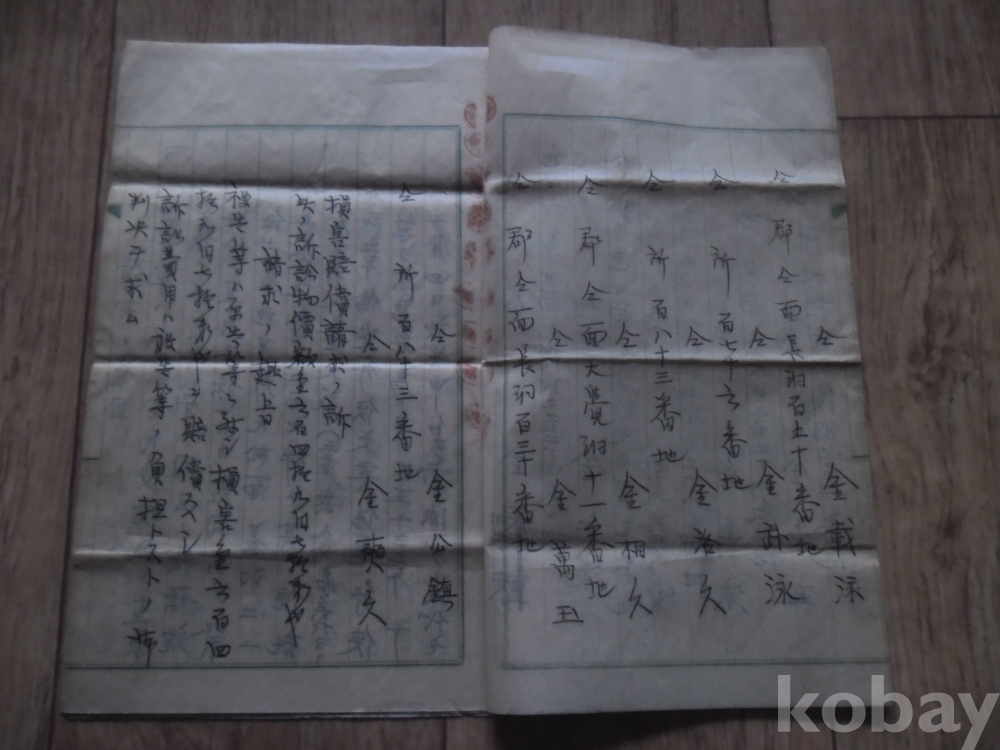 仝郡仝面長羽百五十番地
仝 金載泳
仝 金武泳
仝所百七十六番地
仝 金洛久
仝所百八十三番地
仝 金相久
仝郡仝面大覚洞十一番地
仝 金萬玉
仝郡仝面長羽百三十番地
仝 金 鎮
仝所百八十三番地
仝 金 久
損害賠償請求ノ訴
此ノ訴訟物價額金六百四拾九円七拾
請求ノ趣旨
被告等ハ原告等ニ對シ損害金六百四
拾九円七拾 賠償スヘシ
訴訟費用ハ被告等ノ負担トストノ
判決ヲ求ム
kobay